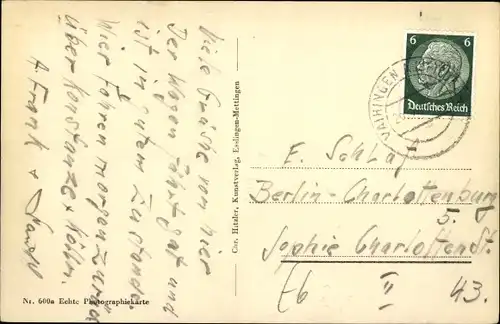 Viele Grüße von hier
Der Wagen fährt gut und
ist in gutem Zustande.
Wir fahren morgen zurück
über Konstanz +
A. Frank +
Nr. 600a Echte Photographiekarte
Car. Hitzler, Kunstverlag, Esslingen-Mettingen
6 6
Deutsches Reich
VAIHINGEN
E. Schlaf
Berlin-Charlottenburg
5.
Sophie Charlottenst.
II 43.